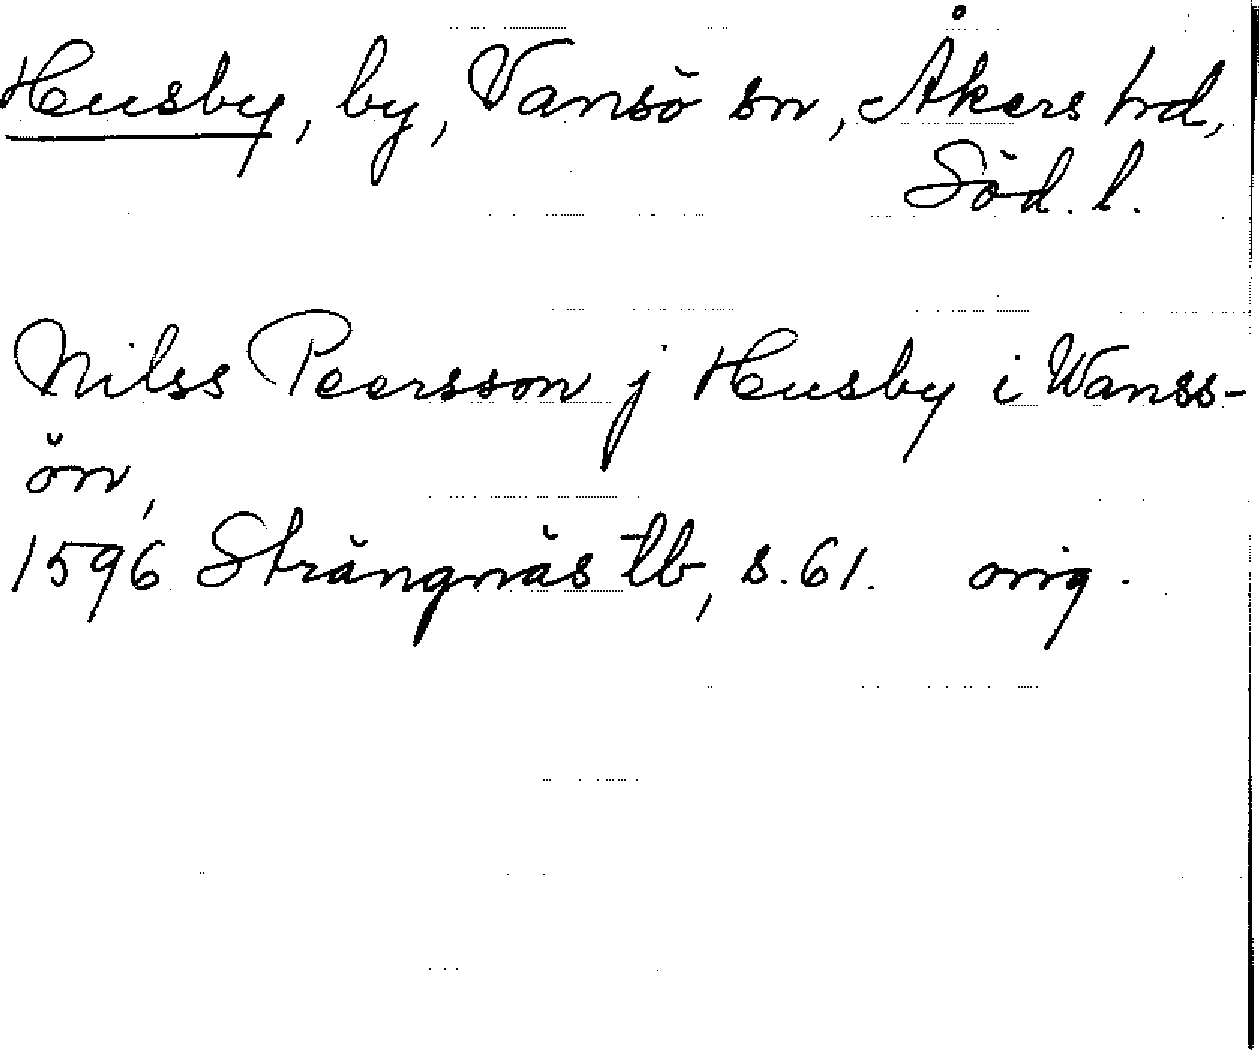 Husby, by, Vansö sn, Åkers hd,
Söd. l.
Nilss Peersson j Husby i Wanss-
ön,
1596 Strängnäs tb, s. 61. orig.